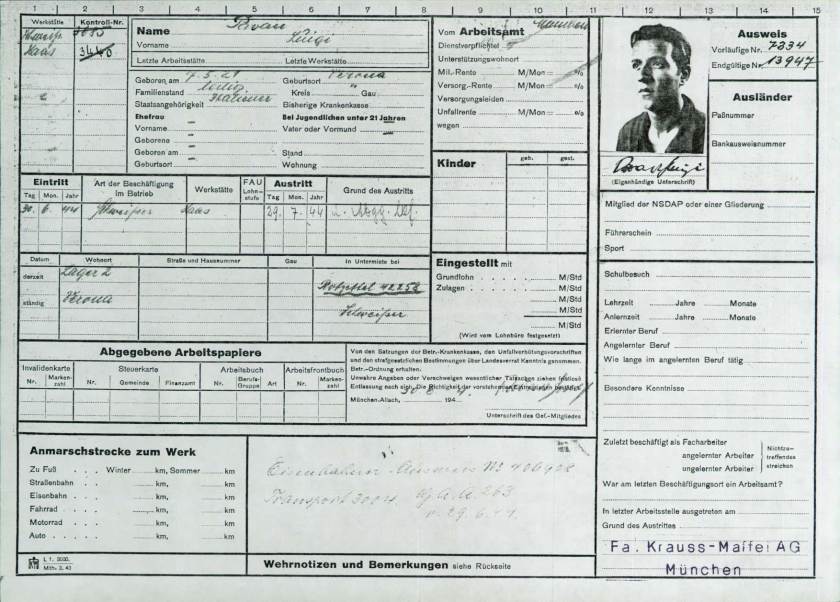 1 2 3 4 5 6 7 8 9 10 11 12 13 14 15
Werkstätte
Kontroll-Nr.
Haas 3440
Name Pavan
Vorname Luigi
Letzte Arbeitsstätte Letzte Werkstätte
Geboren am Geburtsort Verona
Familienstand ledig Kreis " Gau
Staatsangehörigkeit Italiener Bisherige Krankenkasse
Ehefrau Bei Jugendlichen unter 21 Jahren
Vorname Vater oder Vormund
Geborene
Geboren am Stand
Geburtsort Wohnung
Vom Arbeitsamt München
Dienstverpflichtet
Unterstützungswohnort
Mil.-Rente M/Mon = %
Versorg.-Rente M/Mon = %
Versorgungsleiden
Unfallrente M/Mon = %
wegen
Kinder geb. gest.
Ausweis
Vorläufige Nr. 7334
Endgültige Nr. 13947
Ausländer
Paßnummer
Bankausweisnummer
Pavan Luigi
(Eigenhändige Unterschrift)
Eintritt Art der Beschäftigung im Betrieb Werkstätte FAU Lohnstufe Austritt Grund des Austritts
Tag Mon. Jahr Tag Mon. Jahr
30. 6. 44 Schweißer Haas 29. 7. 44
Datum Wohnort Straße und Hausnummer Gau In Untermiete bei
derzeit Lager 2 Rotzettel 42258
ständig Verona Schweißer
Eingestellt mit
Grundlohn M/Std
Zulagen M/Std
M/Std
M/Std
M/Std
(Wird vom Lohnbüro festgesetzt)
Mitglied der NSDAP oder einer Gliederung
Führerschein
Sport
Schulbesuch
Lehrzeit Jahre Monate
Anlernzeit Jahre Monate
Erlernter Beruf
Angelernter Beruf
Wie lange im angelernten Beruf tätig
Besondere Kenntnisse
Zuletzt beschäftigt als Facharbeiter
angelernter Arbeiter
ungelernter Arbeiter
Nichtzutreffendes streichen
War am letzten Beschäftigungsort ein Arbeitsamt?
In letzter Arbeitsstelle ausgetreten am
Grund des Austrittes
Fa. Krauss-Maffei AG
München
Abgegebene Arbeitspapiere
Invalidenkarte Steuerkarte Arbeitsbuch Arbeitsfrontbuch
Nr. Markenzahl Nr. Gemeinde Finanzamt Nr. Berufs-Gruppe Art Nr. Markenzahl
Von den Satzungen der Betr.-Krankenkasse, den Unfallverhütungsvorschriften
und den strafgesetzlichen Bestimmungen über Landesverrat Kenntnis genommen.
Betr.-Ordnung erhalten.
Unwahre Angaben oder Verschweigen wesentlicher Tatsachen ziehen fristlose
Entlassung nach sich. Die Richtigkeit der vorstehenden Eintragungen bestätigt
München-Allach, 30. 6. 194 4.
Unterschrift des Gef.-Mitgliedes
Anmarschstrecke zum Werk
Zu Fuß Winter km, Sommer km
Straßenbahn km, km
Eisenbahn km, km
Fahrrad km, km
Motorrad km, km
Auto km, km
Eisenbahn-Ausweis Nr 406928
Transport 3004
v. 29.6.44
L 1. 3000.
Mith. 2. 43
Wehrnotizen und Bemerkungen siehe Rückseite